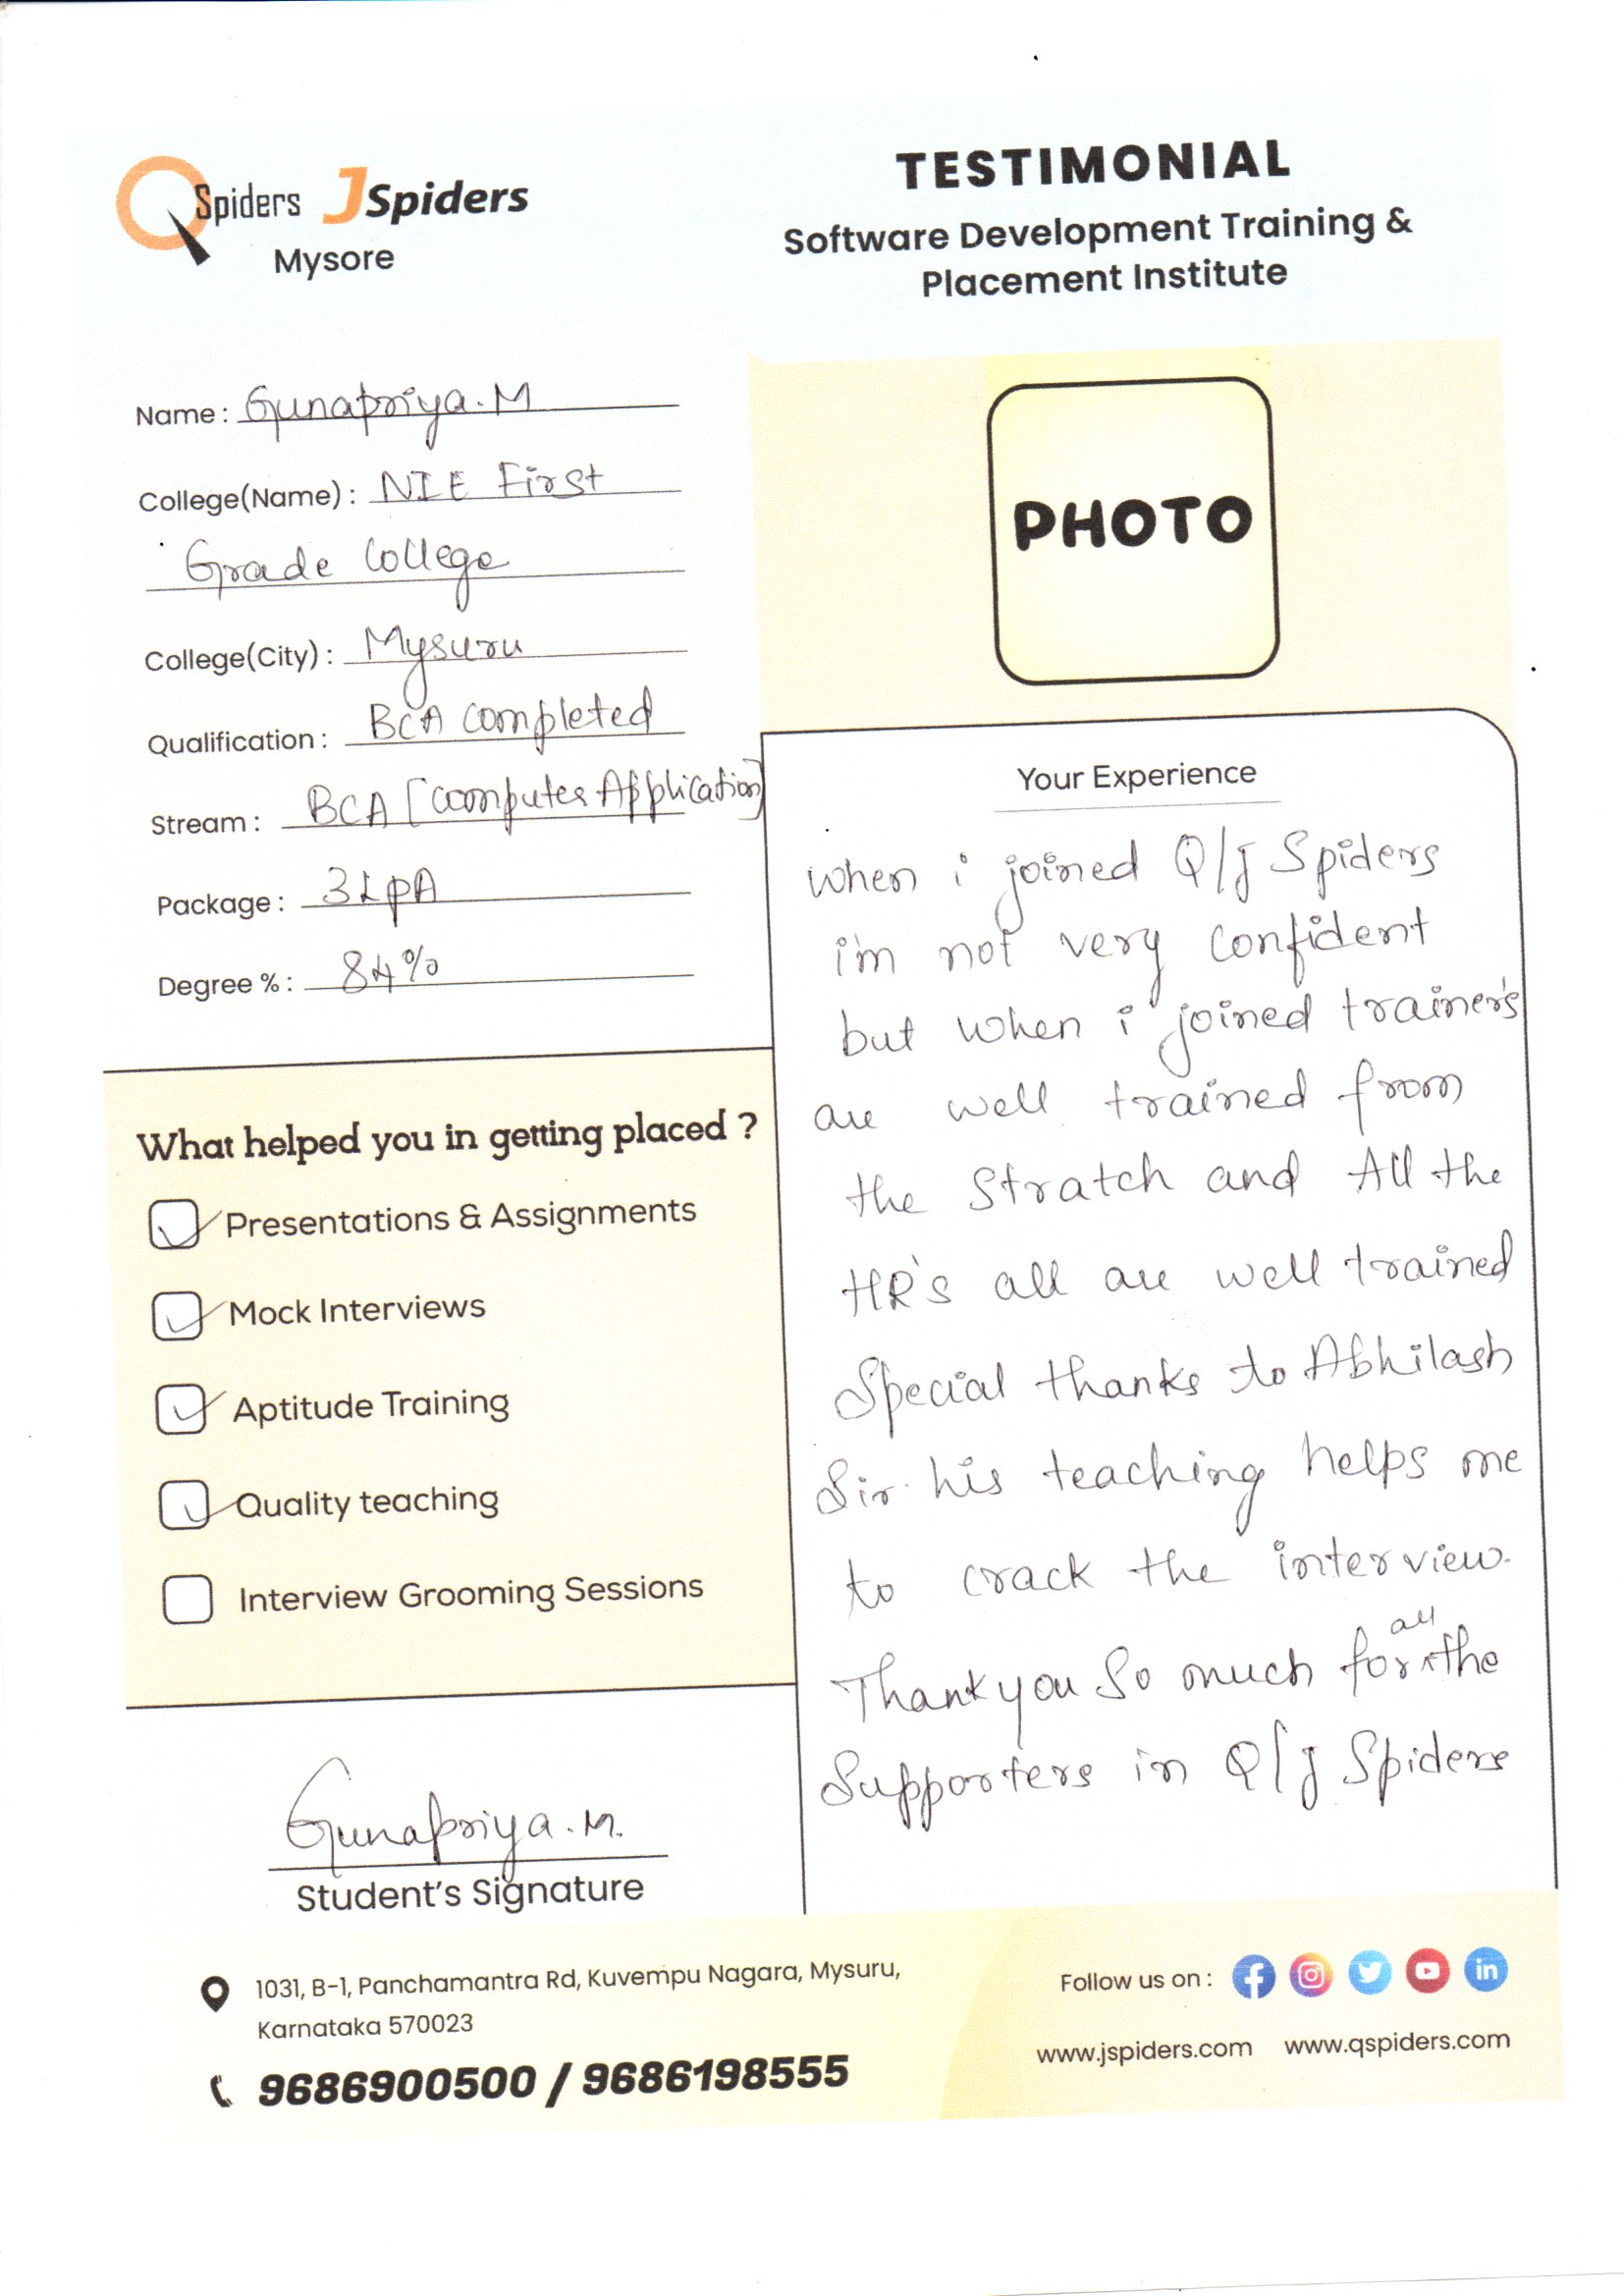 QSpiders JSpiders
Mysore
TESTIMONIAL
Software Development Training &
Placement Institute
Name : Gunapriya.M
College(Name) : NIE First
Grade College
College(City) : Mysuru
Qualification : BCA completed
Stream : BCA [computer Application]
Package : 3LpA
Degree % : 84%
PHOTO
What helped you in getting placed ?
Presentations & Assignments
Mock Interviews
Aptitude Training
Quality teaching
Interview Grooming Sessions
Gunapriya.M.
Student's Signature
Your Experience
when i joined Q/J Spiders
i'm not very confident
but when i joined trainer's
are well trained from
the Stratch and All the
HR's all are well trained
Special thanks to Abhilash
Sir. his teaching helps me
to crack the interview.
Thank you So much for all the
Supporters in Q/J Spiders
1031, B-1, Panchamantra Rd, Kuvempu Nagara, Mysuru,
Karnataka 570023
9686900500 / 9686198555
Follow us on :
www.jspiders.com www.qspiders.com